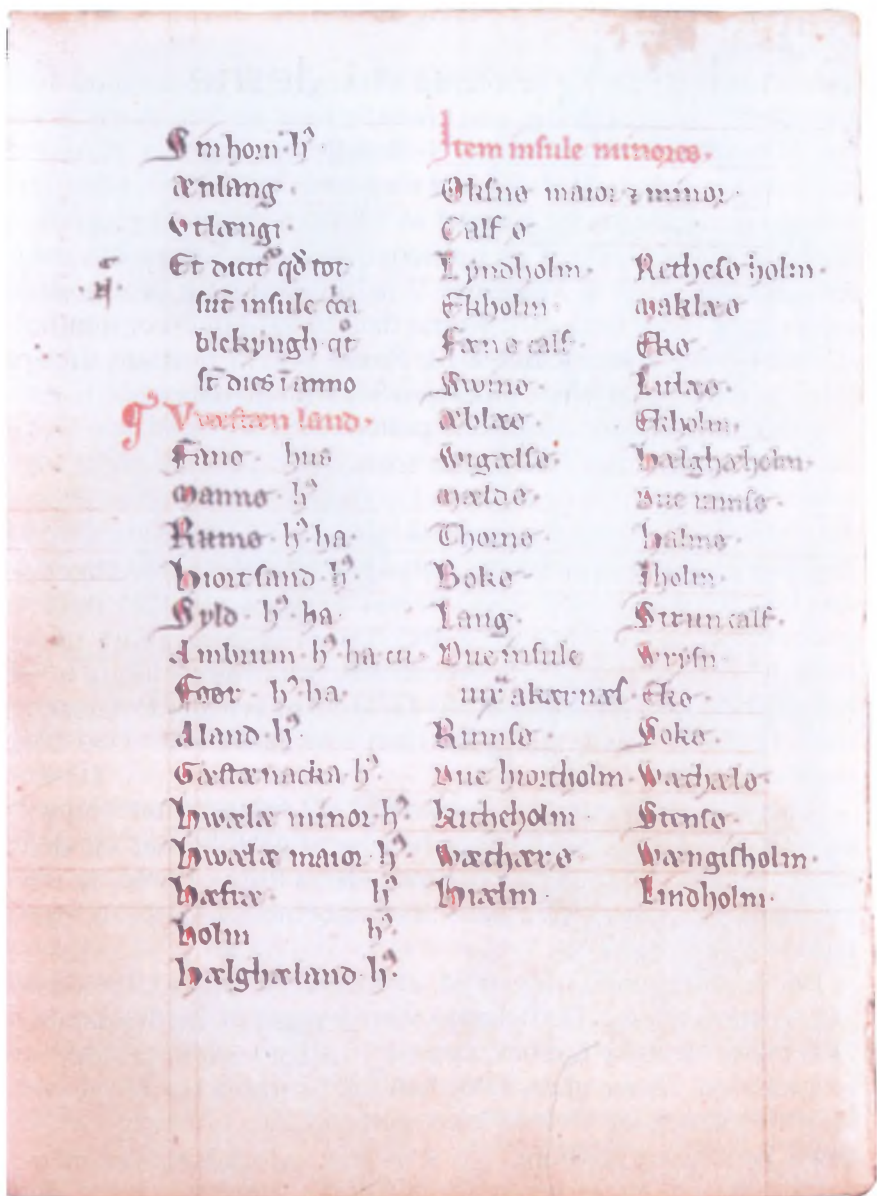 Imhorn · hꝰ
ænlang ·
Vtlængi ·
Et dicitᷣ qđ tot
sūt insule cͣca
blekyngh qͦt
st̄ dies ī anno
Vvæstæn land ·
Fanø · huꝰ
Mannø · hꝰ
Rumø · hꝰ · ha ·
hiort sand · hꝰ ·
Syld · hꝰ · ha ·
Ambrum · hꝰ ha cu ·
Føør · hꝰ · ha ·
Aland · hꝰ ·
Gæstænacka · hꝰ
hwælæ minor · hꝰ
hwælæ maior · hꝰ ·
hæfræ · hꝰ
holm hꝰ ·
hælghæland · hꝰ ·
Item insule minores ·
Oksnø maior ⁊ minor ·
Calf ø
Lyndholm ·
Ekholm ·
Fæn ø calf ·
Swinø ·
æblæø ·
Ængælsø ·
Mældø ·
Thornø ·
Bokø ·
Lang ·
Due insule
iux̄ akærnæs ·
Rumsø ·
Due hiortholm ·
kirkeholm
Wæthærø ·
hiælm ·
Rethesø holm ·
Maklæø
Ekø ·
Lutæø ·
Ekholm ·
hælghæholm ·
Due ramsø ·
halmø ·
Iholm ·
Strun calf ·
Drysn
Ekø ·
Bokø ·
Wæthælø ·
Stensø ·
Wængisholm ·
Lindholm ·